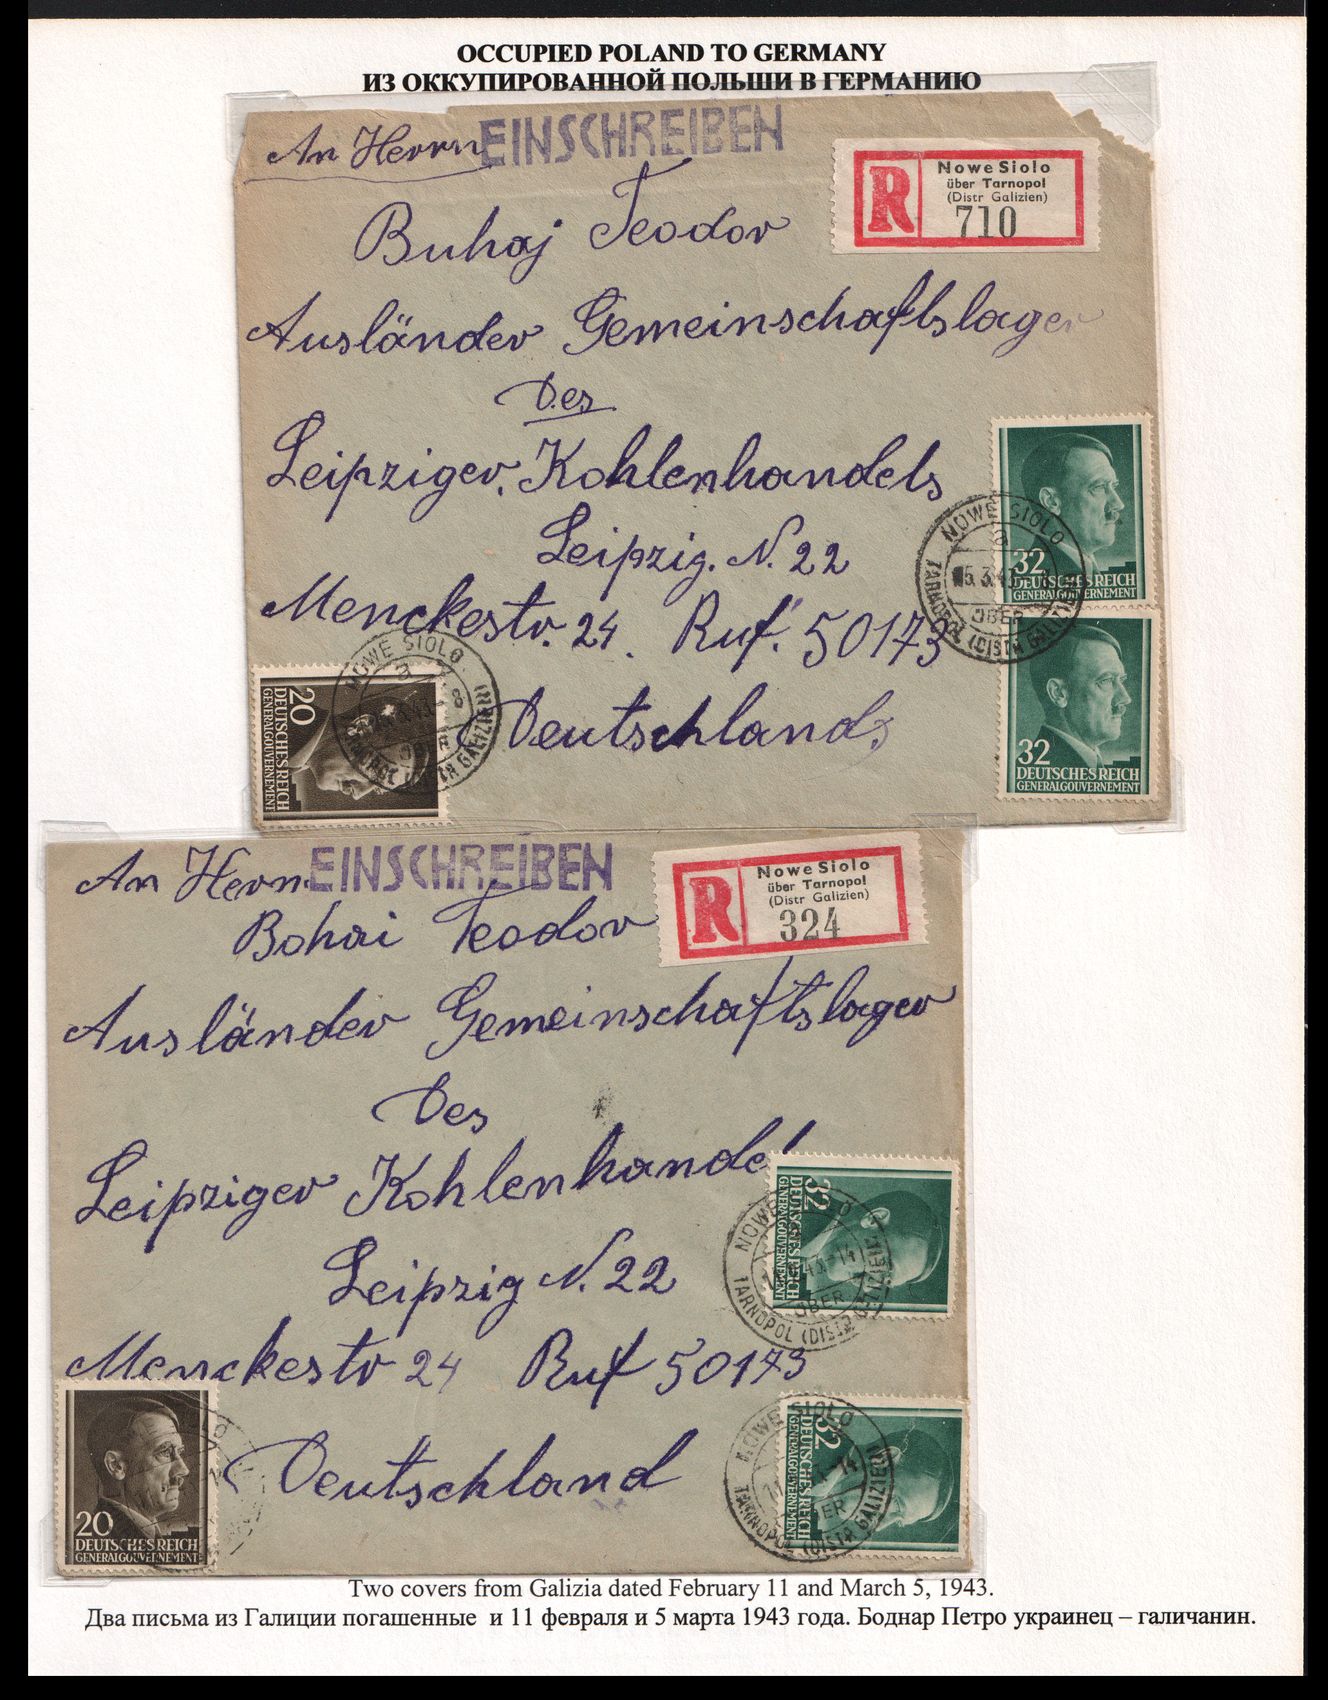 OCCUPIED POLAND TO GERMANY
ИЗ ОККУПИРОВАННОЙ ПОЛЬШИ В ГЕРМАНИЮ
An Herrn EINSCHREIBEN
R
Nowe Siolo
über Tarnopol
(Distr Galizien)
710
Buhaj Teodor
Ausländer Gemeinschaftslager
Des
Leipziger Kohlenhandels
Leipzig. N. 22
Menckestr. 24. Ruf. 50173
Deutschland
32
DEUTSCHES REICH
GENERALGOUVERNEMENT
NOWE SIOLO
a
5.3.43
ÜBER
TARNOPOL (DISTR GALIZIEN)
32
DEUTSCHES REICH
GENERALGOUVERNEMENT
20
DEUTSCHES REICH
GENERALGOUVERNEMENT
NOWE SIOLO
a
GALIZIEN)
An Herrn EINSCHREIBEN
R
Nowe Siolo
über Tarnopol
(Distr Galizien)
324
Bohai Teodor
Ausländer Gemeinschaftslager
Des
Leipziger Kohlenhandel
Leipzig N. 22
Menckestr 24 Ruf 50173
Deutschland
32
DEUTSCHES REICH
GENERALGOUVERNEMENT
NOWE
43-14
ÜBER
TARNOPOL (DISTR GALIZIEN)
32
DEUTSCHES REICH
GENERALGOUVERNEMENT
NOWE SIOLO
ÜBER
TARNOPOL (DISTR GALIZIEN)
20
DEUTSCHES REICH
GENERALGOUVERNEMENT
Two covers from Galizia dated February 11 and March 5, 1943.
Два письма из Галиции погашенные и 11 февраля и 5 марта 1943 года. Боднар Петро украинец – галичанин.